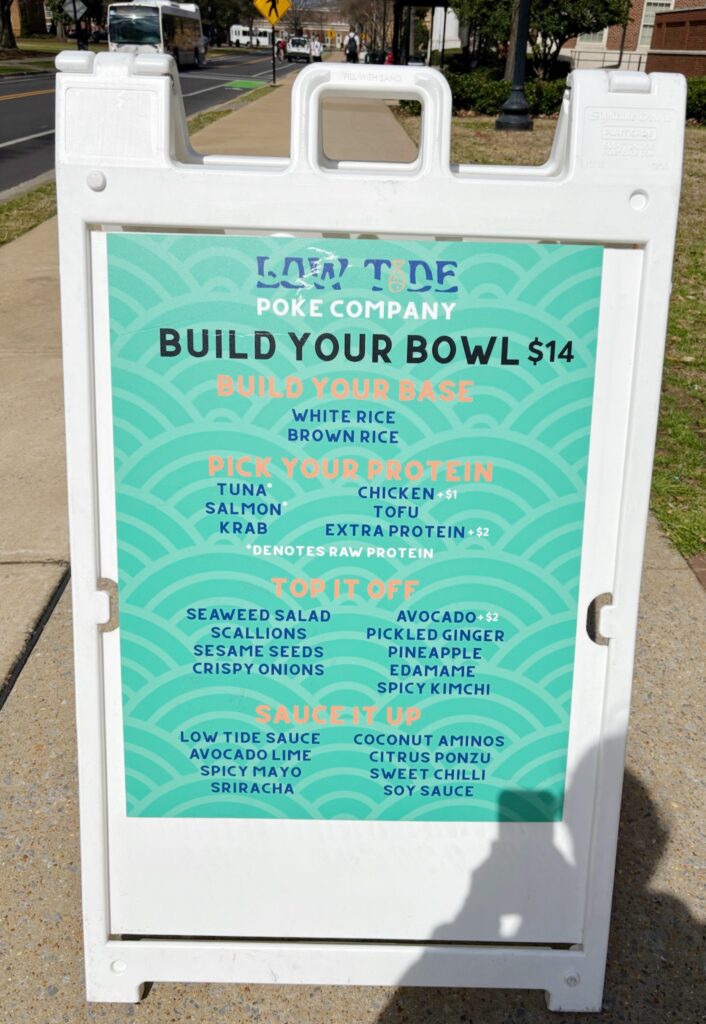 FILL WITH SAND
LOW TIDE
POKE COMPANY
BUILD YOUR BOWL $14
BUILD YOUR BASE
WHITE RICE
BROWN RICE
PICK YOUR PROTEIN
TUNA*
SALMON*
KRAB
CHICKEN +$1
TOFU
EXTRA PROTEIN +$2
*DENOTES RAW PROTEIN
TOP IT OFF
SEAWEED SALAD
SCALLIONS
SESAME SEEDS
CRISPY ONIONS
AVOCADO +$2
PICKLED GINGER
PINEAPPLE
EDAMAME
SPICY KIMCHI
SAUCE IT UP
LOW TIDE SAUCE
AVOCADO LIME
SPICY MAYO
SRIRACHA
COCONUT AMINOS
CITRUS PONZU
SWEET CHILLI
SOY SAUCE